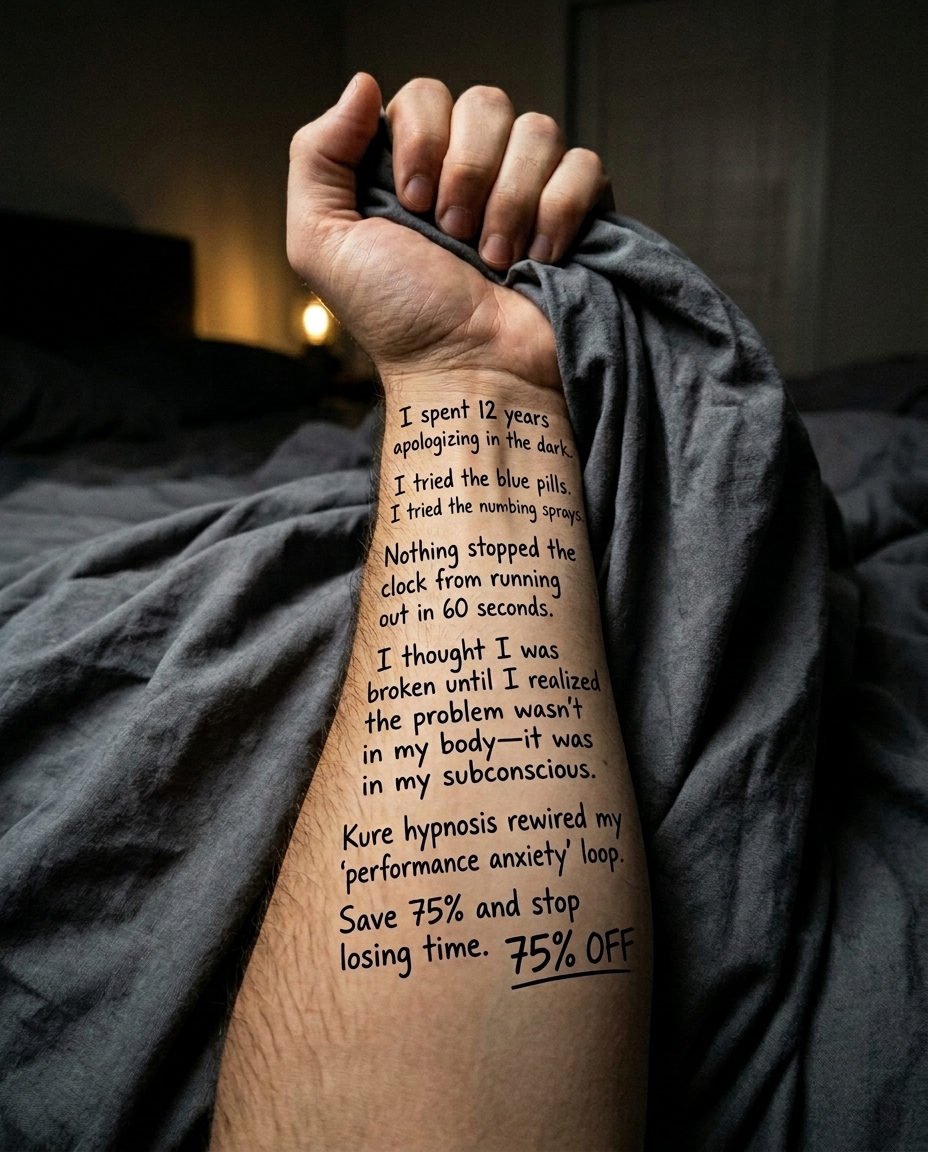 I spent 12 years
apologizing in the dark.
I tried the blue pills.
I tried the numbing sprays.
Nothing stopped the
clock from running
out in 60 seconds.
I thought I was
broken until I realized
the problem wasn't
in my body—it was
in my subconscious.
Kure hypnosis rewired my
'performance anxiety' loop.
Save 75% and stop
losing time. 75% OFF